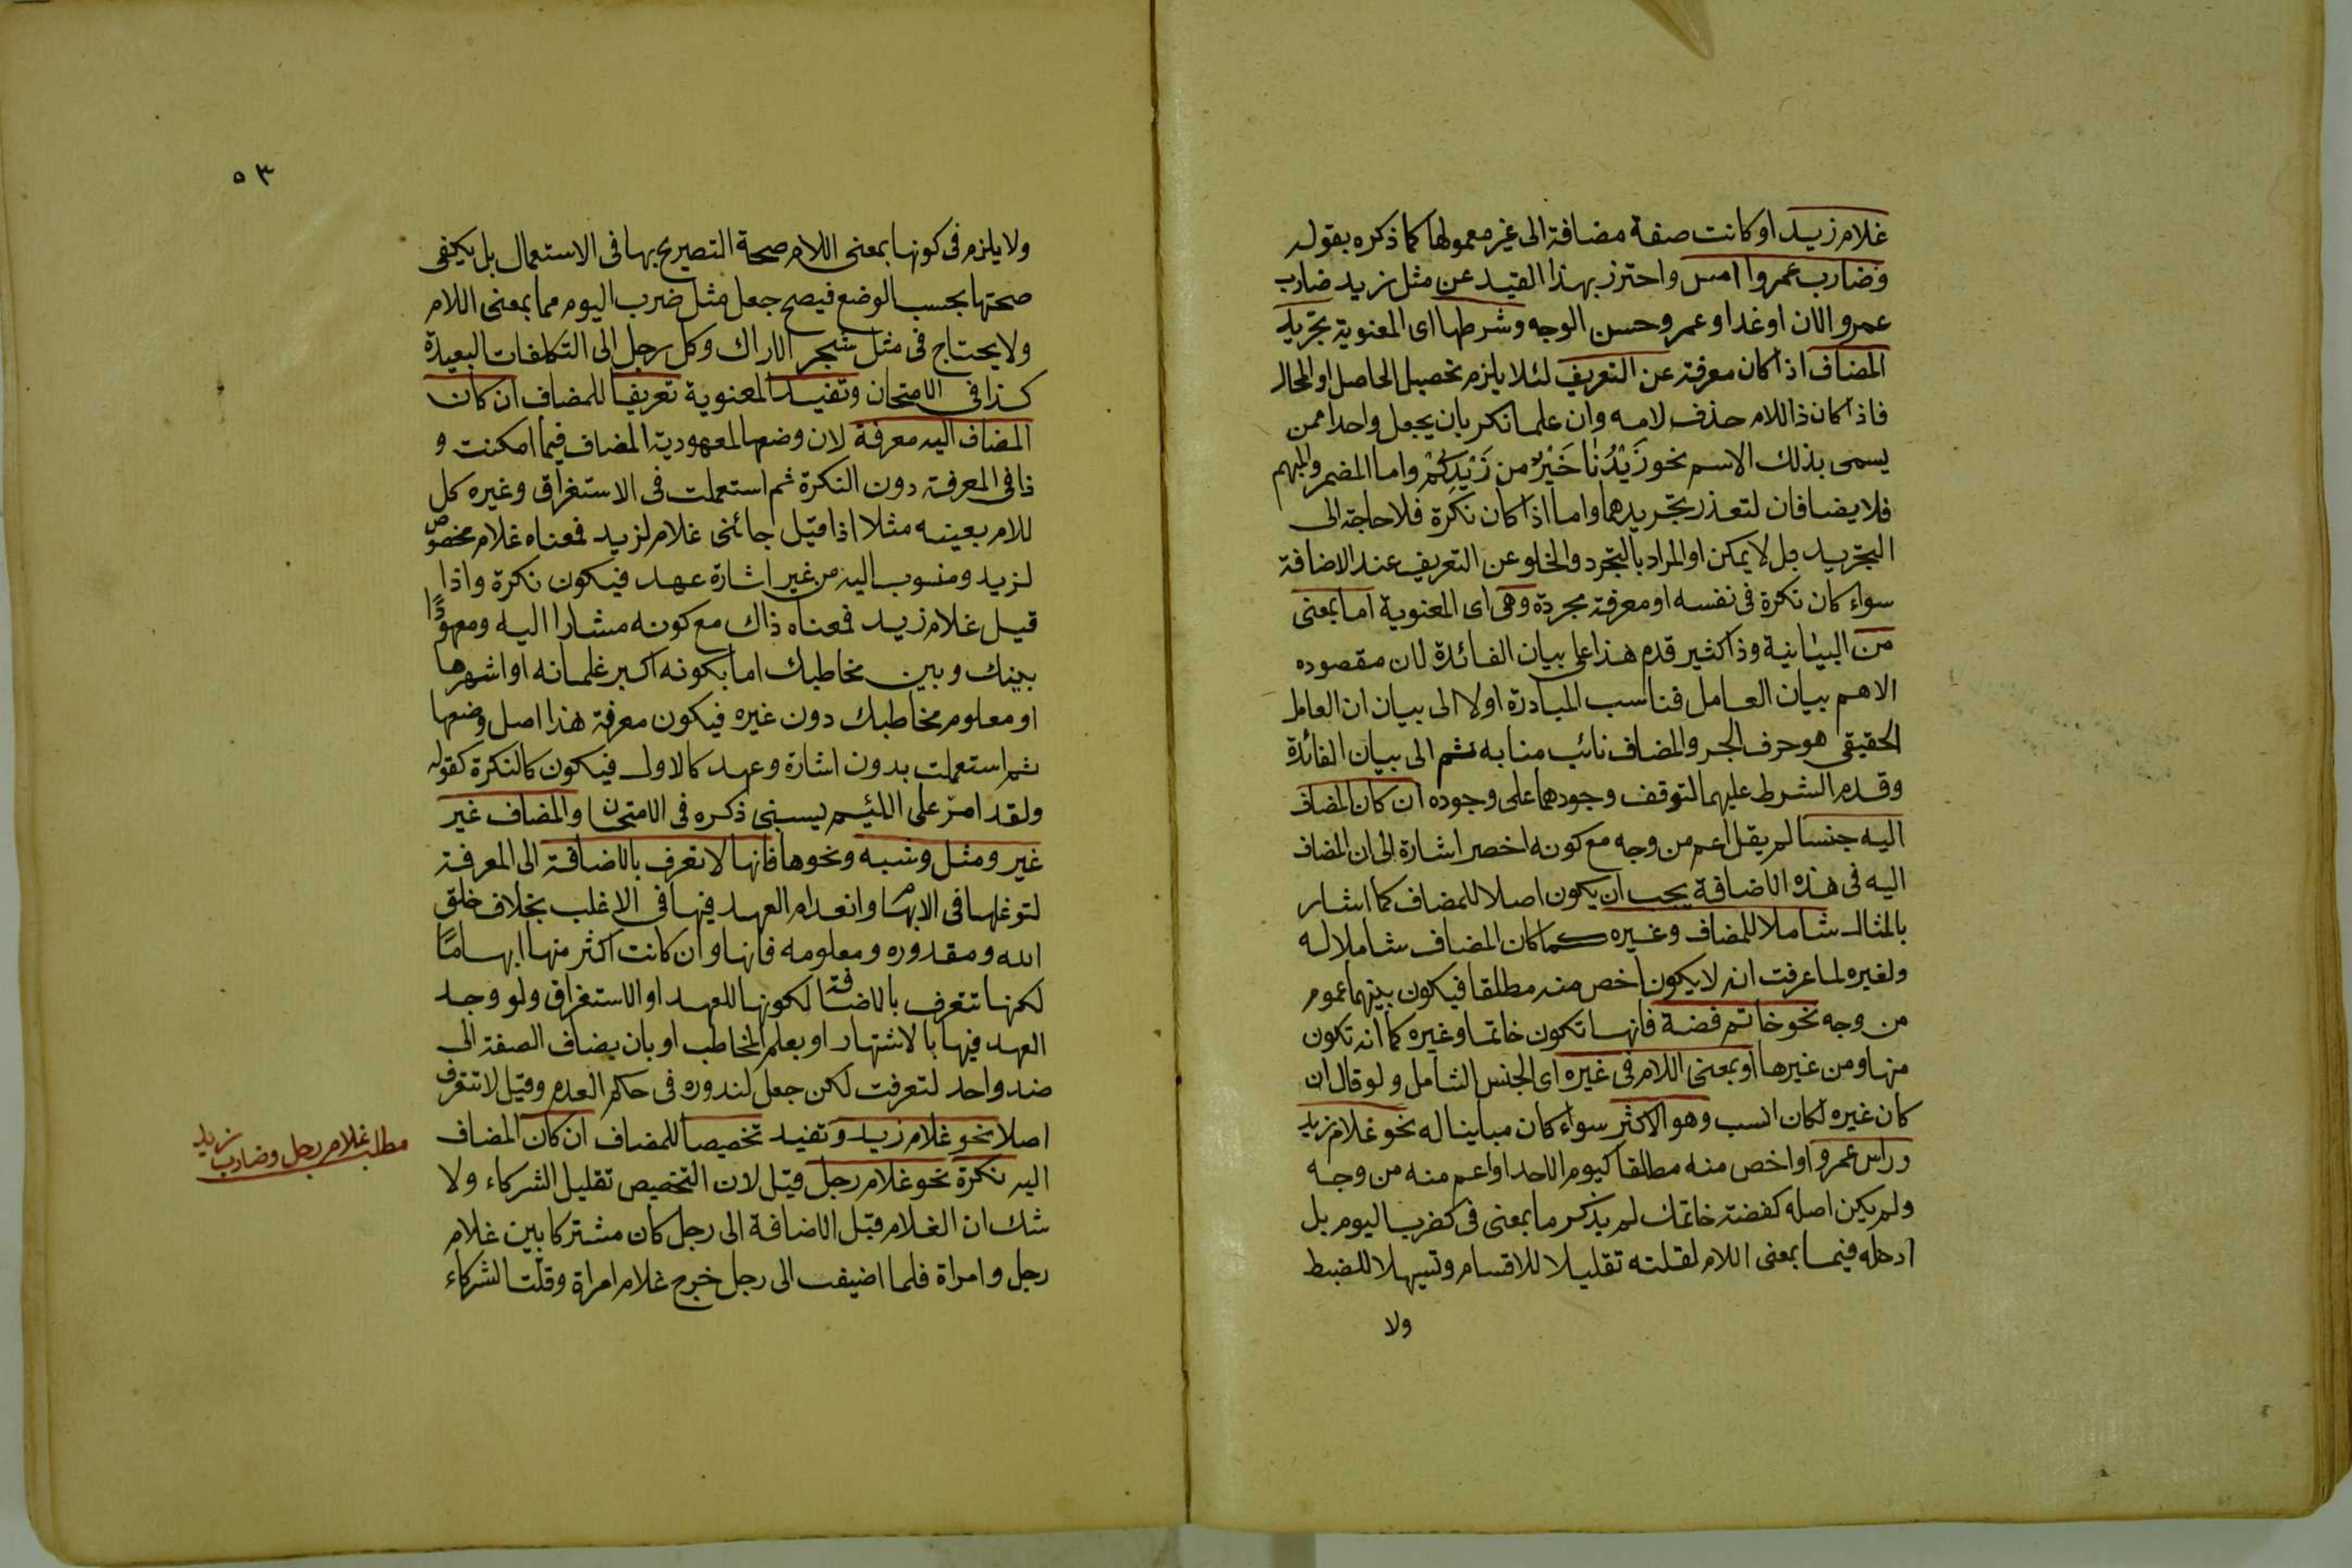 غلام زيد او كانت صفة مضافة الى غير معمولها كما ذكره بقوله
وضارب عمروا امس واحترز بهذا القيد عن مثل زيد ضارب
عمرو الان او غدا وعمرو حسن الوجه وشرطها اى المعنوية تجريد
المضاف اذا كان معرفة عن التعريف لئلا يلزم تحصيل الحاصل او المحال
فاذا كان ذا اللام حذف لامه وان علما نكر بان يجعل واحدا ممن
يسمى بذلك الاسم نحو زَيْدُنَا خَيْرٌ من زَيْدِكُمْ واما المضمر والمبهم
فلا يضافان لتعذر تجريدهما واما اذا كان نكرة فلا حاجة الى
التجريد بل لا يمكن او المراد بالتجرد والخلو عن التعريف عند الاضافة
سواء كان نكرة فى نفسه او معرفة مجردة وهى اى المعنوية اما بمعنى
من البيانية وذا كثير قدم هذا على بيان الفائدة لان مقصوده
الاهم بيان العامل فناسب المبادرة اولا الى بيان ان العامل
الحقيقى هو حرف الجر والمضاف نائب منابه ثم الى بيان الفائدة
وقدم الشرط عليهما لتوقف وجودهما على وجوده ان كان المضاف
اليه جنسا لم يقل اعم من وجه مع كونه اخصر اشارة الى ان المضاف
اليه فى هذه الاضافة يجب ان يكون اصلا للمضاف كما اشار
بالمثال شاملا للمضاف وغيره كما كان المضاف شاملا له
ولغيره لما عرفت انه لا يكون اخص منه مطلقا فيكون بينهما عموم
من وجه نحو خاتم فضة فانها تكون خاتما وغيره كما انه تكون
منها ومن غيرها او بمعنى اللام فى غيره اى الجنس الشامل ولو قال ان
كان غيره لكان انسب وهو الاكثر سواء كان مباينا له نحو غلام زيد
وراس عمرو او اخص منه مطلقا كيوم الاحد او اعم منه من وجه
ولم يكن اصله كفضة خاتمك لم يذكر ما بمعنى فى كضرب اليوم بل
ادخله فيما بمعنى اللام لقلته تقليلا للاقسام وتسهيلا للضبط
ولا
٥٣
ولا يلزم فى كونها بمعنى اللام صحة التصريح بها فى الاستعمال بل يكفى
صحتها بحسب الوضع فيصح جعل مثل ضرب اليوم مما بمعنى اللام
ولا يحتاج فى مثل شجر الاراك وكل رجل الى التكلفات البعيدة
كذا فى الامتحان وتفيد المعنوية تعريفا للمضاف ان كان
المضاف اليه معرفة لان وضعها لمعهودية المضاف فيما امكنت و
ذا فى المعرفة دون النكرة ثم استعملت فى الاستغراق وغيره كل
للام بعينه مثلا اذا قيل جائنى غلام لزيد فمعناه غلام مخصوص
لزيد ومنسوب اليه من غير اشارة عهد فيكون نكرة واذا
قيل غلام زيد فمعناه ذاك مع كونه مشارا اليه ومعهودًا
بينك وبين مخاطبك اما بكونه اكبر غلمانه او اشهرها
او معلوم مخاطبك دون غيره فيكون معرفة هذا اصل وضعها
ثم استعملت بدون اشارة وعهد كالاول فيكون كالنكرة كقوله
ولقد امرّ على اللئيم يسبنى ذكره فى الامتحان والمضاف غير
غير ومثل وشبه ونحوها فانها لا تعرف بالاضافة الى المعرفة
لتوغلها فى الابهام وانعدام العهد فيها فى الاغلب بخلاف خلق
الله ومقدوره ومعلومه فانها وان كانت اكثر منها ابهامًا
لكنها تتعرف بالاضافة لكونها للعهد او الاستغراق ولو وجد
العهد فيها بالاشتهار او بعلم المخاطب او بان يضاف الصفة الى
ضد واحد لتعرفت لكن جعل لندوره فى حكم العدم وقيل لا تتعرف
اصلا نحو غلام زيد وتفيد تخصيصا للمضاف ان كان المضاف
اليه نكرة نحو غلام رجل قيل لان التخصيص تقليل الشركاء ولا
شك ان الغلام قبل الاضافة الى رجل كان مشتركا بين غلام
رجل وامراة فلما اضيف الى رجل خرج غلام امراة وقلّت الشركاء
مطلب غلام رجل وضارب زيد